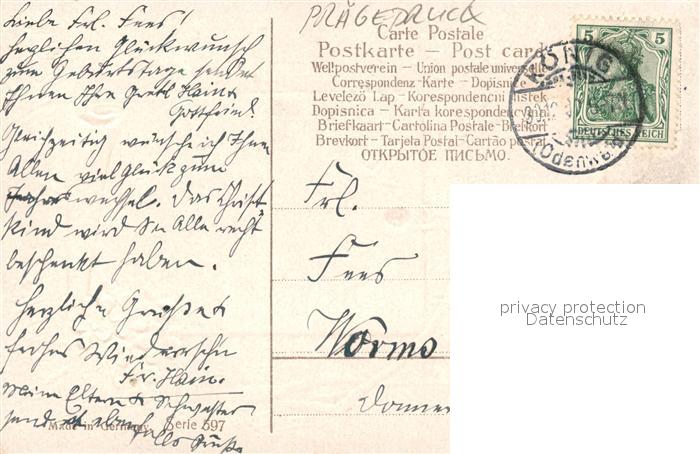 Liebe Frl. Fees!
Herzlichen Glückwunsch
zum Geburtstage sendet
Ihnen Ihre Gretl Hain
Gottfried.
Gleichzeitig wünsche ich Ihnen
Allen viel Glück zum
Jahreswechsel. Das Christ
Kind wird Sie Alle recht
beschenkt haben.
Herzliche Grüße &
frohes Wiedersehn
Fr. Hain.
Meine Eltern & Schwester
senden ebenfalls Grüße
Made in Germany Serie 597
PRÄGEDRUCK
Carte Postale
Postkarte — Post card
Weltpostverein — Union postale universelle
Correspondenz-Karte — Dopisnice
Levelező Lap - Korespondencni listek
Dopisnica — Karta korespondencyjna
Briefkaart - Cartolina Postale - Brefkort
Brevkort - Tarjeta Postal - Cartão postal
ОТКРЫТОЕ ПИСЬМО.
5 5
DEUTSCHES REICH
KÖNIG
Frl.
Fees
Worms
privacy protection
Datenschutz